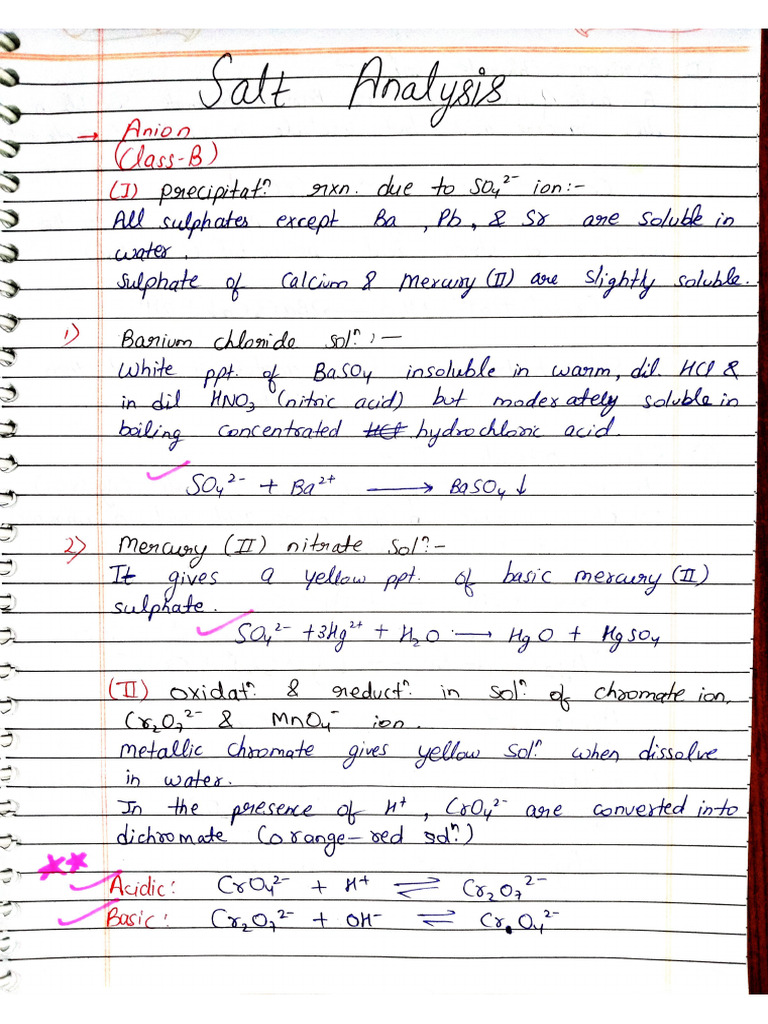 Salt Analysis
→ Anion
(Class-B)
(I) Precipitatⁿ rxn. due to SO₄²⁻ ion:-
All sulphates except Ba, Pb, & Sr are soluble in
water.
Sulphate of Calcium & Mercury (II) are slightly soluble.
1) Barium chloride solⁿ:-
White ppt. of BaSO₄ insoluble in warm, dil. HCl &
in dil HNO₃ (nitric acid) but moderately soluble in
boiling concentrated hydrochloric acid.
SO₄²⁻ + Ba²⁺ ⟶ BaSO₄↓
2) Mercury (II) nitrate solⁿ:-
It gives a yellow ppt. of basic mercury (II)
sulphate.
SO₄²⁻ + 3Hg²⁺ + H₂O ⟶ HgO + HgSO₄
(II) Oxidatⁿ & reductⁿ in solⁿ of chromate ion,
Cr₂O₇²⁻ & MnO₄⁻ ion.
Metallic chromate gives yellow solⁿ when dissolve
in water.
In the presence of H⁺, CrO₄²⁻ are converted into
dichromate (orange-red solⁿ)
Acidic: CrO₄²⁻ + H⁺ ⇌ Cr₂O₇²⁻
Basic: Cr₂O₇²⁻ + OH⁻ ⇌ CrO₄²⁻